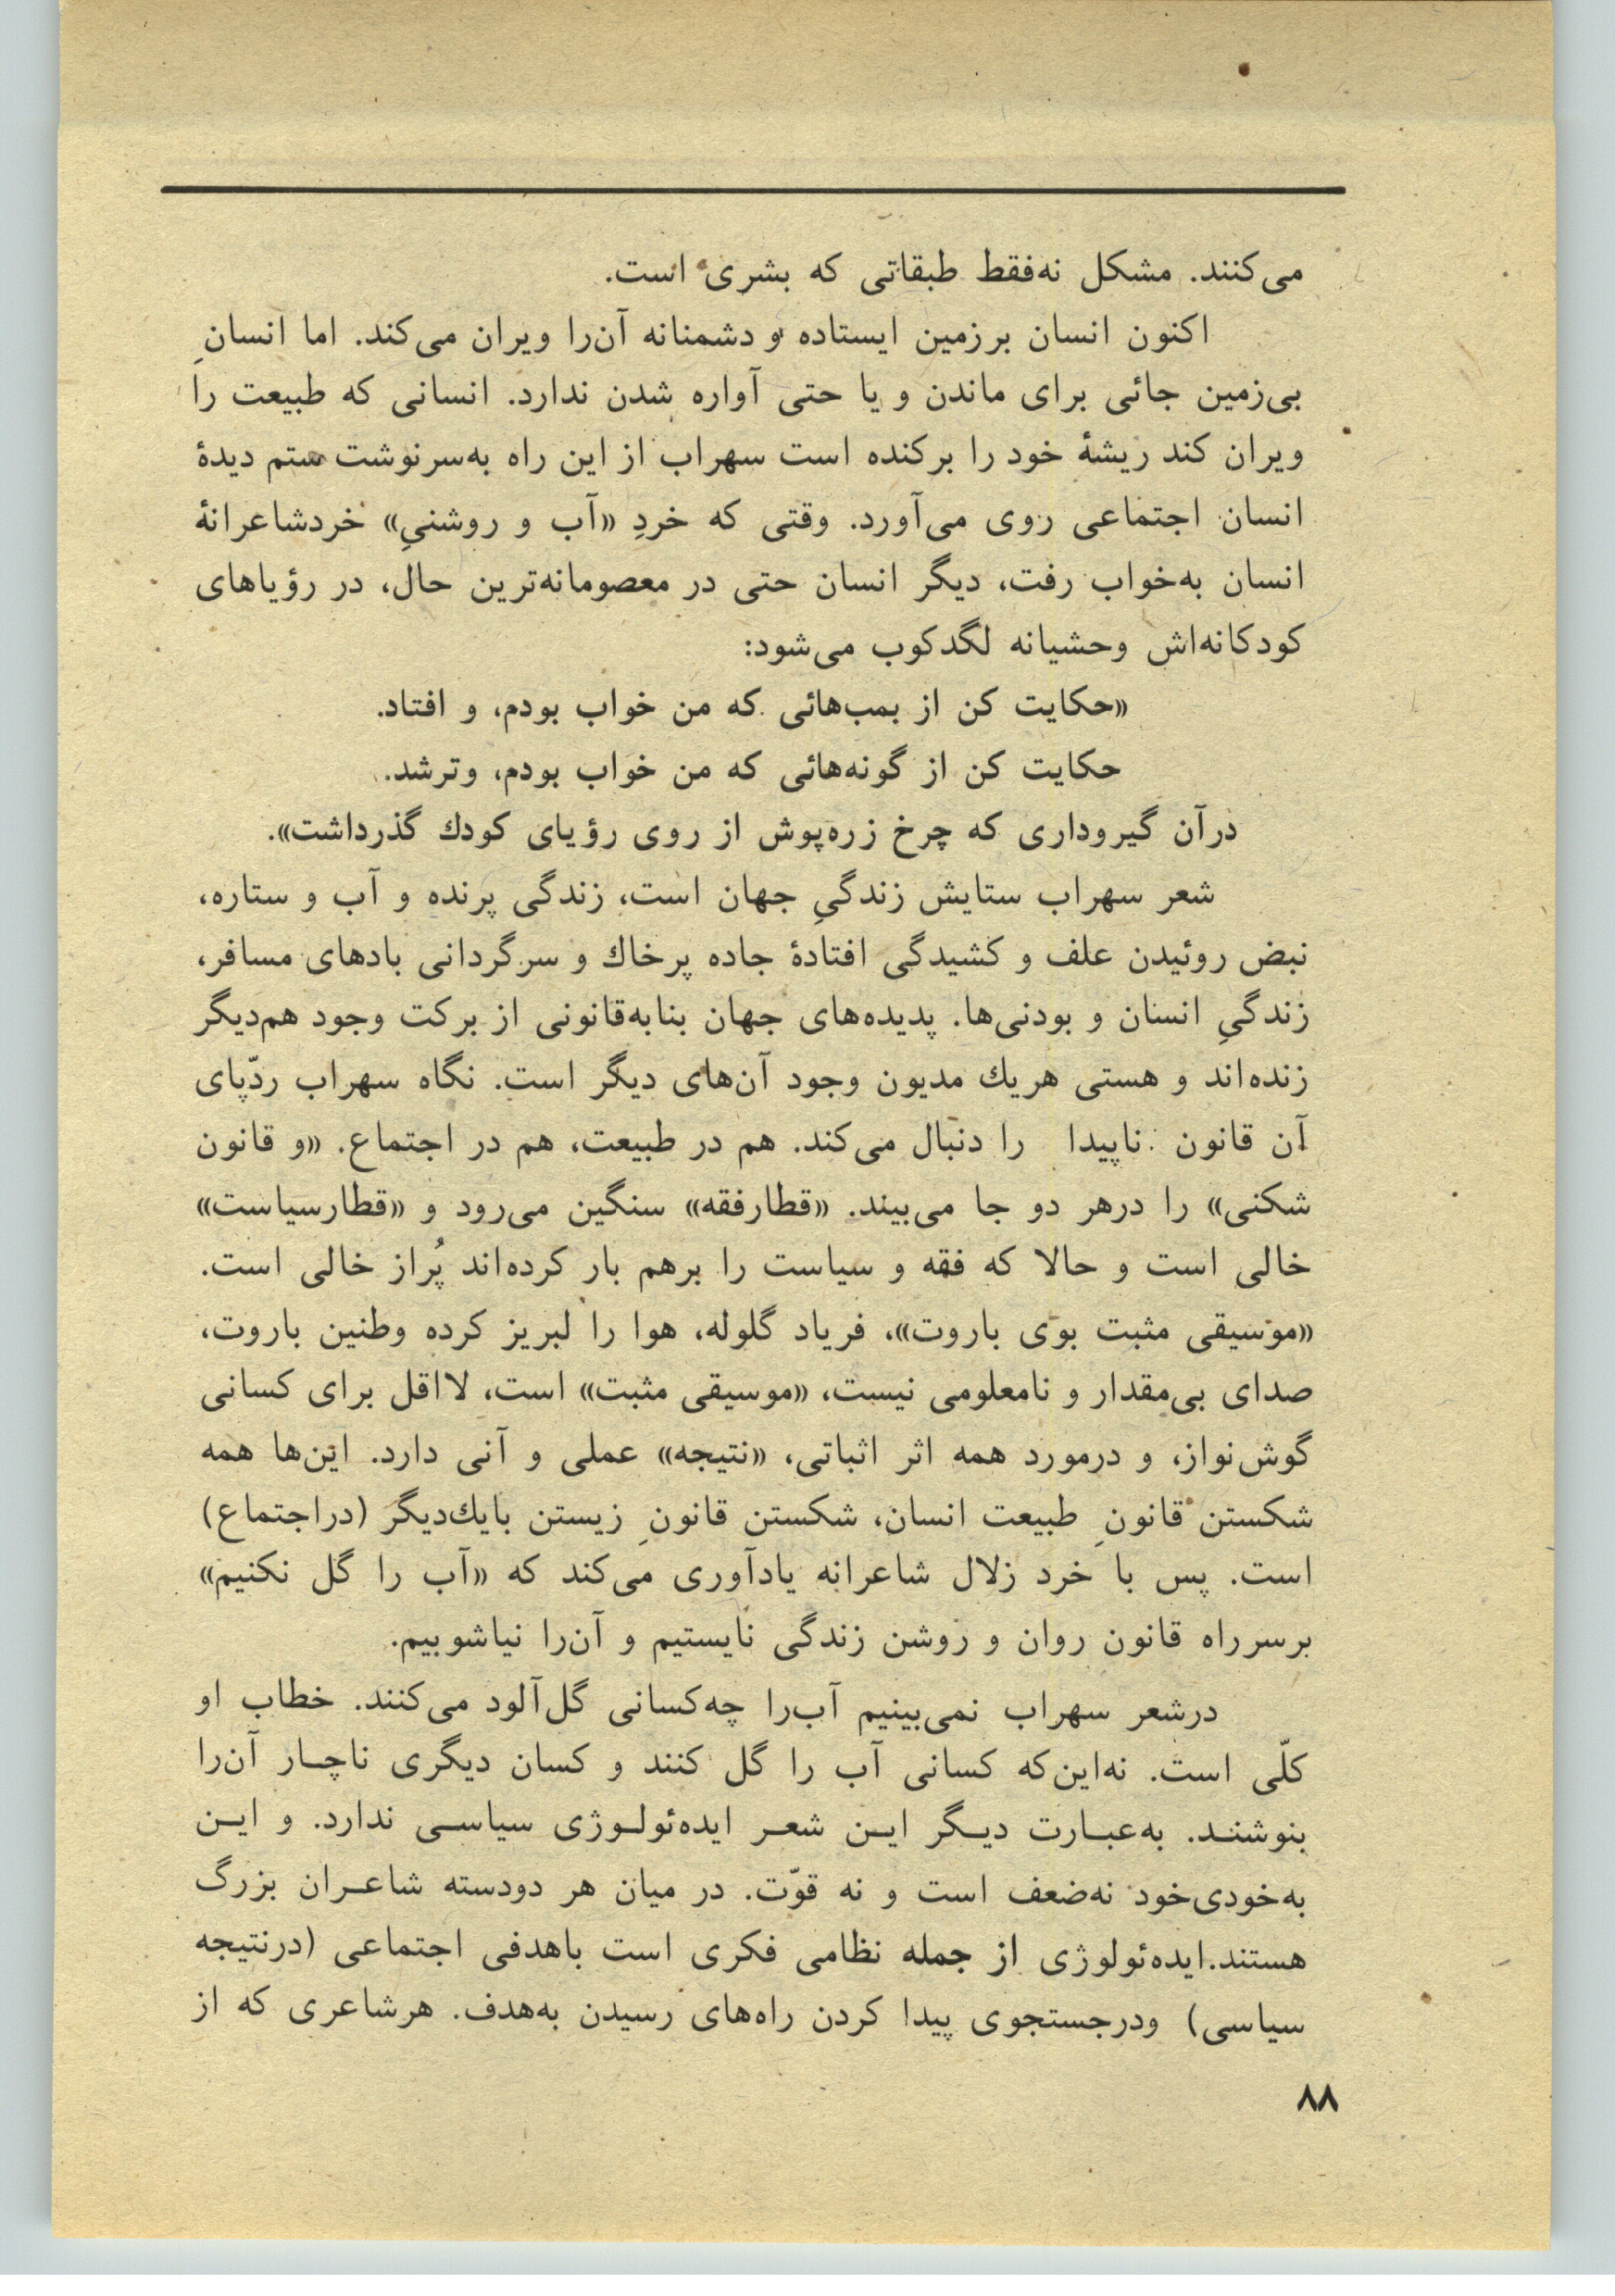 می‌کنند. مشکل نه‌فقط طبقاتی که بشری است.
اکنون انسان برزمین ایستاده و دشمنانه آن‌را ویران می‌کند. اما انسانِ
بی‌زمین جائی برای ماندن و یا حتی آواره شدن ندارد. انسانی که طبیعت را
ویران کند ریشهٔ خود را برکنده است سهراب از این راه به‌سرنوشت ستم دیدهٔ
انسان اجتماعی روی می‌آورد. وقتی که خردِ «آب و روشنیِ» خردشاعرانهٔ
انسان به‌خواب رفت، دیگر انسان حتی در معصومانه‌ترین حال، در رؤیاهای
کودکانه‌اش وحشیانه لگدکوب می‌شود:
«حکایت کن از بمب‌هائی که من خواب بودم، و افتاد.
حکایت کن از گونه‌هائی که من خواب بودم، وترشد.
درآن گیروداری که چرخ زره‌پوش از روی رؤیای کودك گذرداشت».
شعر سهراب ستایش زندگیِ جهان است، زندگی پرنده و آب و ستاره،
نبض روئیدن علف و کشیدگی افتادهٔ جاده پرخاك و سرگردانی بادهای مسافر،
زندگیِ انسان و بودنی‌ها. پدیده‌های جهان بنابه‌قانونی از برکت وجود هم‌دیگر
زنده‌اند و هستی هریك مدیون وجود آن‌های دیگر است. نگاه سهراب ردّپای
آن قانون ناپیدا را دنبال می‌کند. هم در طبیعت، هم در اجتماع. «و قانون
شکنی» را درهر دو جا می‌بیند. «قطارفقه» سنگین می‌رود و «قطارسیاست»
خالی است و حالا که فقه و سیاست را برهم بار کرده‌اند پُراز خالی است.
«موسیقی مثبت بوی باروت»، فریاد گلوله، هوا را لبریز کرده وطنین باروت،
صدای بی‌مقدار و نامعلومی نیست، «موسیقی مثبت» است، لااقل برای کسانی
گوش‌نواز، و درمورد همه اثر اثباتی، «نتیجه» عملی و آنی دارد. این‌ها همه
شکستن قانونِ طبیعت انسان، شکستن قانونِ زیستن بایك‌دیگر (دراجتماع)
است. پس با خرد زلال شاعرانه یادآوری می‌کند که «آب را گل نکنیم»
برسرراه قانون روان و روشن زندگی نایستیم و آن‌را نیاشوبیم.
درشعر سهراب نمی‌بینیم آب‌را چه‌کسانی گل‌آلود می‌کنند. خطاب او
کلّی است. نه‌این‌که کسانی آب را گل کنند و کسان دیگری ناچـار آن‌را
بنوشنـد. به‌عبـارت دیـگر ایـن شعـر ایده‌ئولـوژی سیاسـی ندارد. و ایـن
به‌خودی‌خود نه‌ضعف است و نه قوّت. در میان هر دودسته شاعـران بزرگ
هستند.ایده‌ئولوژی از جمله نظامی فکری است باهدفی اجتماعی (درنتیجه
سیاسی) ودرجستجوی پیدا کردن راه‌های رسیدن به‌هدف. هرشاعری که از
۸۸